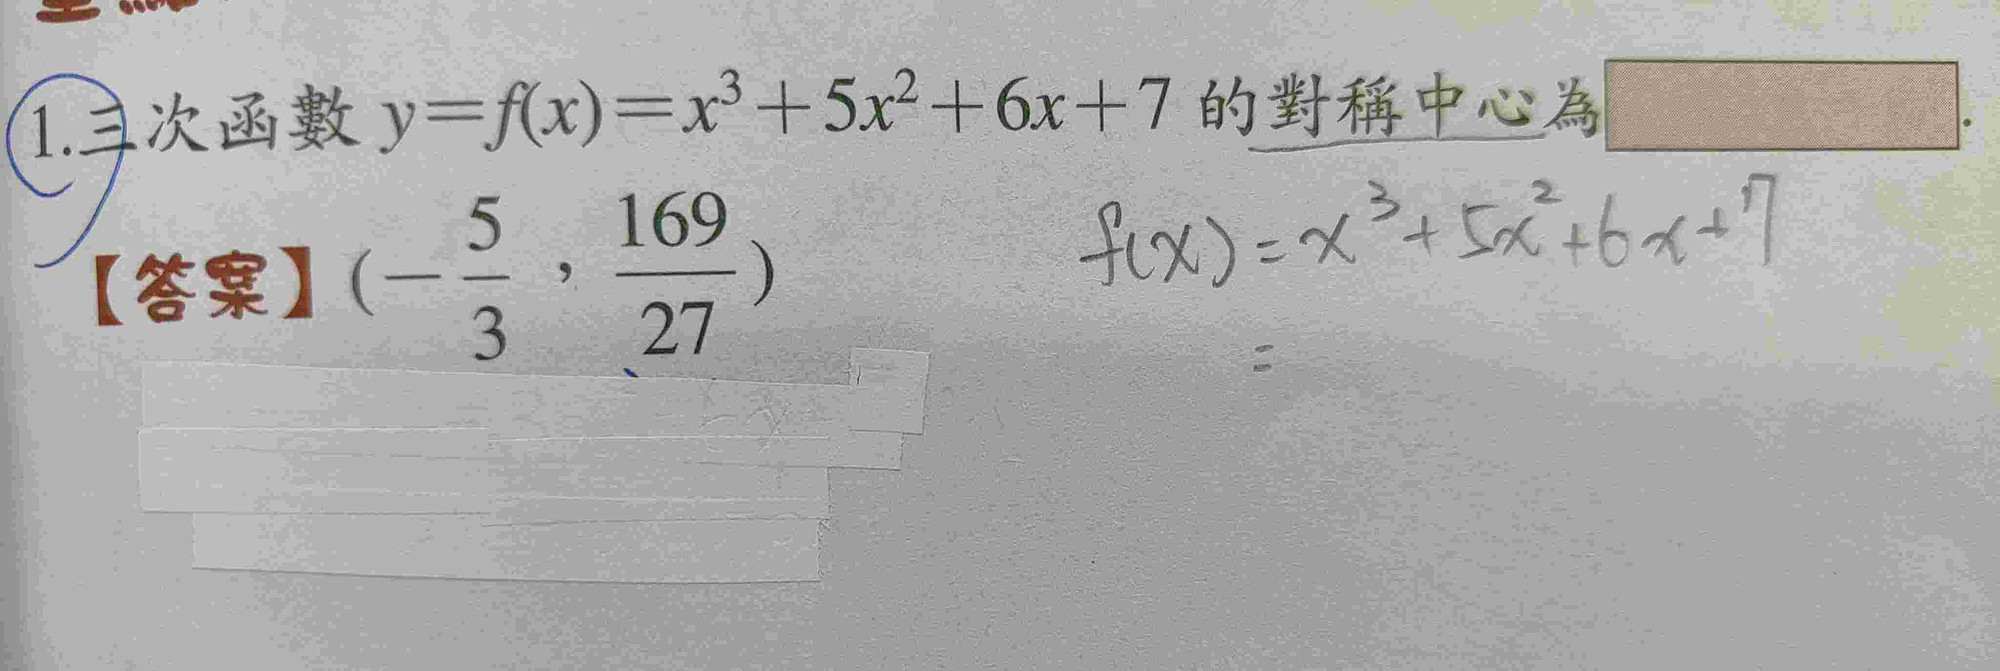 1.三次函數 y=f(x)=x³+5x²+6x+7 的對稱中心為 .
【答案】(-5/3,169/27)
f(x)=x³+5x²+6x+7
=